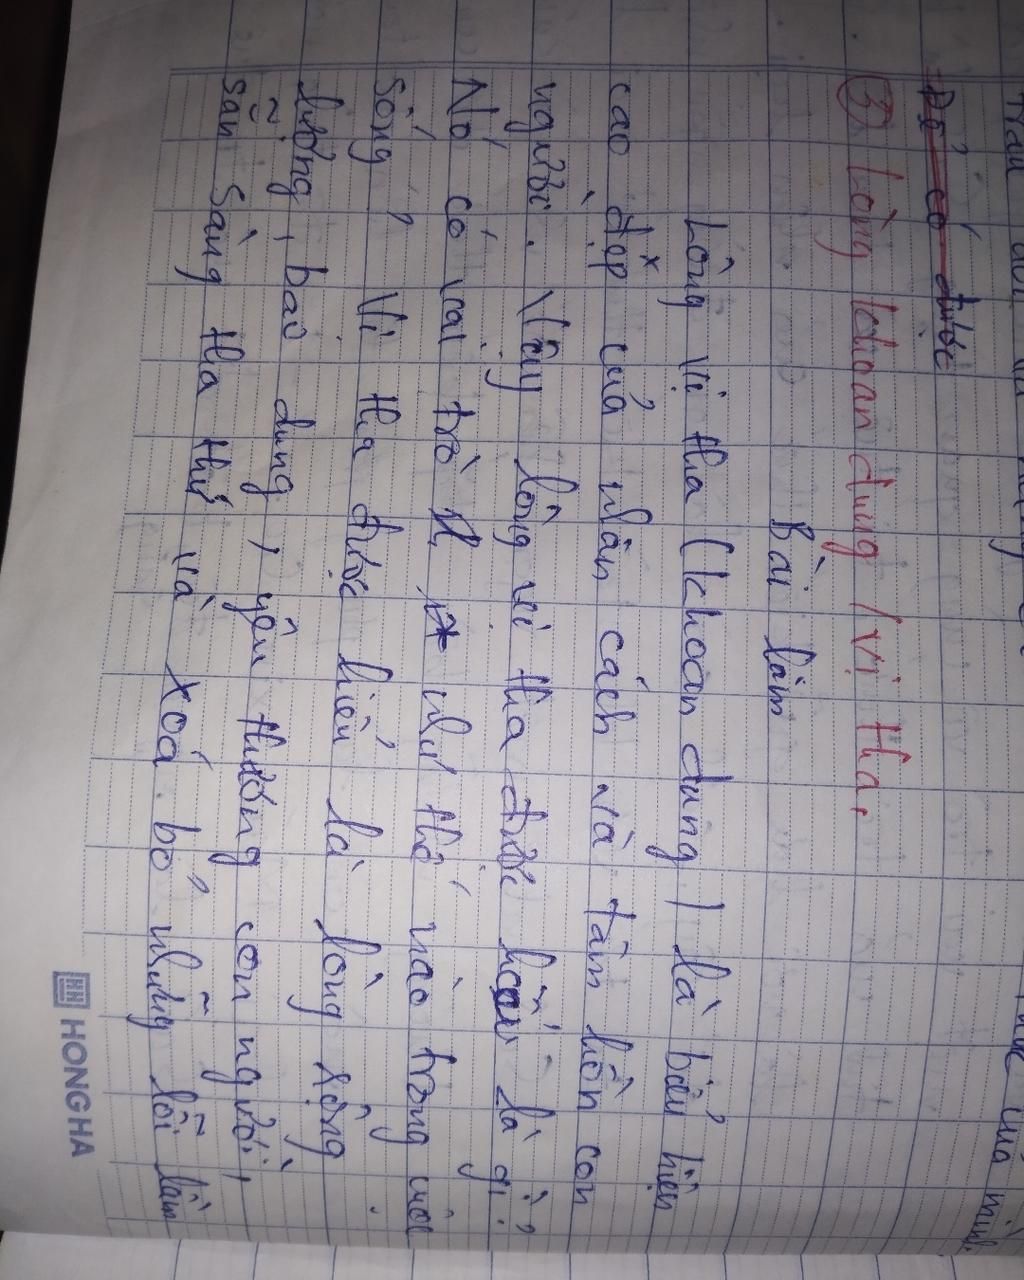 của mình.
Để có được
③ Lòng khoan dung / vị tha.
Bài làm
Lòng vị tha (khoan dung) là biểu hiện
cao đẹp của nhân cách và tâm hồn con
người. Vậy lòng vị tha được hiểu là gì?
Nó có vai trò như thế nào trong cuộc
sống? Vị tha được hiểu là lòng rộng
lượng, bao dung, yêu thương con người,
sẵn sàng tha thứ và xoá bỏ những lỗi lầm
HONGHA